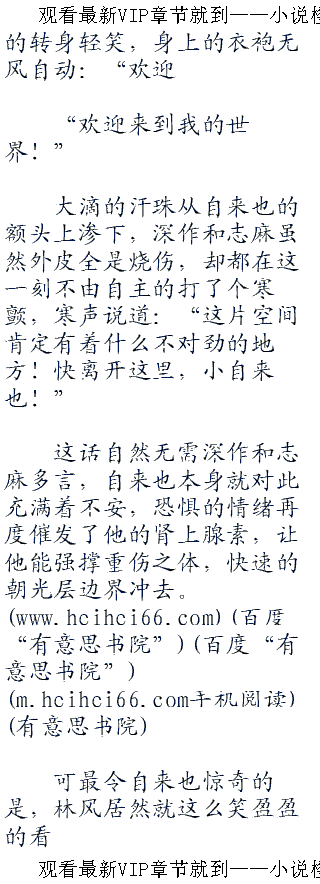 观看最新VIP章节就到——小说检
的转身轻笑，身上的衣袍无
风自动：“欢迎
“欢迎来到我的世
界！”
大滴的汗珠从自来也的
额头上渗下，深作和志麻虽
然外皮全是烧伤，却都在这
一刻不由自主的打了个寒
颤，寒声说道：“这片空间
肯定有着什么不对劲的地
方！快离开这里，小自来
也！”
这话自然无需深作和志
麻多言，自来也本身就对此
充满着不安，恐惧的情绪再
度催发了他的肾上腺素，让
他能强撑重伤之体，快速的
朝光层边界冲去。
(www.hcihci66.com)(百度
“有意思书院”)(百度“有
意思书院”)
(m.hcihci66.com手机阅读)
(有意思书院)
可最令自来也惊奇的
是，林风居然就这么笑盈盈
的看
观看最新VIP章节就到——小说检